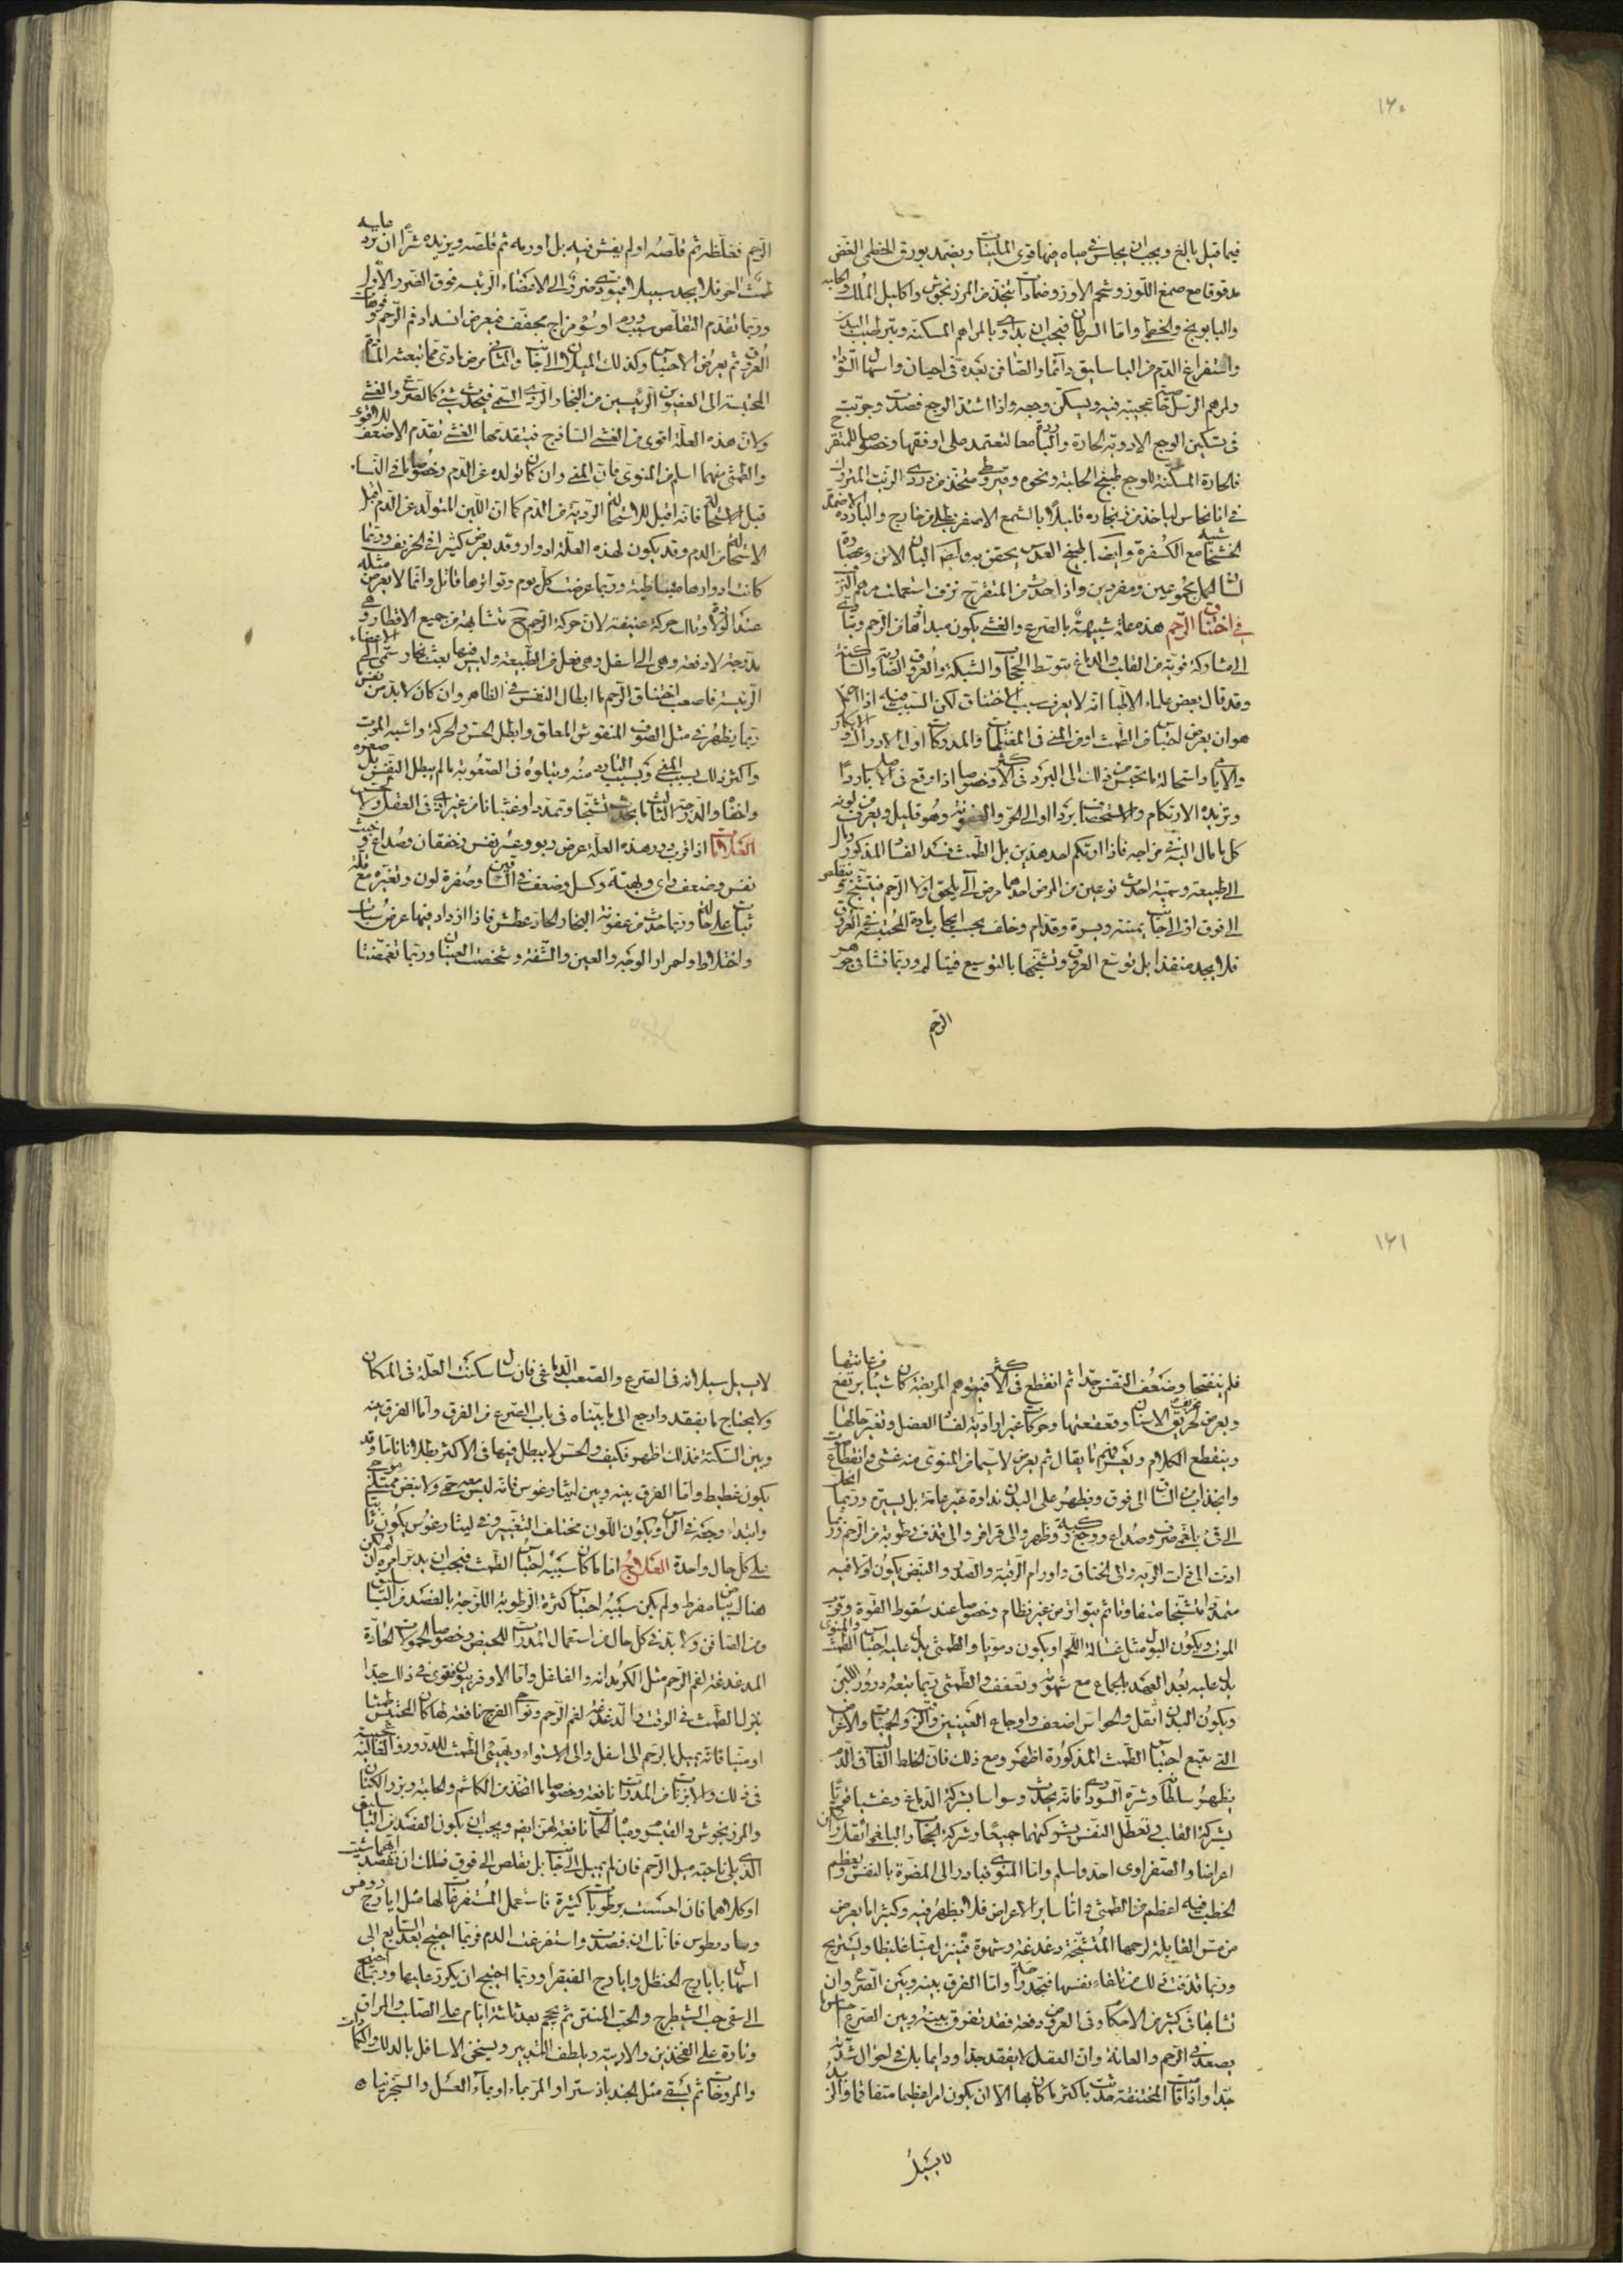 ١٦٠
فيما قبل بالغ ويجب ان يجلس في مياه فيها قوى الملينات ويضمد بورق الخطمى الغض
مدقوقا مع صمغ اللوز وشحم الاوز وضمادات تتخذ من المرزنجوش واكليل الملك والحلبه
والبابونج والخطمى واما السرطان فيجب ان يداوى بالمراهم المسكنة وبترطيب البدن
واستفراغ الدم من الباسليق دائما والصافن بعده في احيان واسهال السوداء
ولمرهم الرسل خاصية عجيبة فيه ويسكن وجعه واذا اشتد الوجع فصدت وجربت
في تسكين الوجع الادوية الحارة والباردة معا لتعتمد على اوفقها وخصوصا للمتقرح
فالحارة المسكنة للوجع طبيخ الحلبة ونحوه وقيروطى متخذ من دردى الزيت المتروك
في اناء نحاس لياخذ من زنجاره قليلا بالشمع الاصفر يطلى من خارج والباردة الاضمدة
الخشخاشية مع الكسفرة وايضا طبيخ العدس يحقن به وايضا البان الاتن وعصارة
لسان الحمل مجموعين ومفردين واذا حدث من المتقرح نزف استعملت مرهم
في اختناق الرحم هذه علة شبيهة بالصرع والغشى يكون مبداها من الرحم وتتادى
الى مشاركة قوية من القلب والدماغ بتوسط الحجاب والشبكة والعروق الضاربة والساكنة
وقد قال بعض علماء الاطباء انه لا يعرف سبب الاختناق لكن السبب فيه اذا حصل
هو ان يعرض احتباس من الطمث او من المنى في المغتلمات والمدركات اول الادراك والابكار
والايامى واستحالة ما يحتبس من ذلك الى البرد في الاكثر وخصوصا اذا وقع في الاصل باردا
ويزيده الارتكام والاستحصاف بردا او الى الحر والعفونة وهو قليل ويعرف من لونه
كل ما مال اليه في مزاجه فاذا ارتكم احد هذين بل الطمث فسد الفساد المذكور ومال
الى طبيعة وسمية احدث نوعين من المرض احدهما مرض آلى يلحق اولا الرحم فيتشنج وتتقلص
الى فوق او الى جانب يمنة ويسرة وقدام وخلف بحسب ايجاب المادة المحتبسة في العروق
فلا يجد منفذا بل توسع العروق وتشنجها بالتوسيع فيتالم وربما تشافى جوهر
الرحم
الرحم فغلظه ثم قلصه او لم يفش فيه بل اورمه ثم قلصه ويزيده شرا ان يرد عليه
طمث اخر فلا يجد سبيلا فيؤدى ضرره الى الاعضاء الرئيسه فوق الضرر الاول
وربما تقدم التقلص بسبب ورم او سوء مزاج مجفف فيعرض انسداد فم الرحم وفوهات
العروق ثم يعرض الاحتباس وكذلك الميلان الى الجانب والثانى مرض مادى مما تبعثه المادة
المحتبسة الى العضوين الرئيسين من البخار الردى السمى فيحدث شئ كالصرع والغشى
ولان هذه العلة اقوى من الغشى الساذج فيتقدمها الغشى تقدم الاضعف للاقوى
والطمثى منهما اسلم من المنوى فان المنى وان كان تولده عن الدم وخصوصا في النساء
قبل الاستحالة فانه اقبل للاستحالة الردية من الدم كما ان اللبن المتولد عن الدم اقبل
للاستحالة من الدم وقد يكون لهذه العلة ادوار وقد يعرض كثيرا في الخريف وربما
كانت ادوارها متباطية وربما عرضت كل يوم وتواترها قاتل وانما لا يعرض مثله
عند الولادة وتلك حركة عنيفة لان حركة الرحم ح متشابهة من جميع الاقطار وهى
مدرجة لا دفعة وهى الى اسفل وهى فعل من الطبيعة وليس فيها بعث بخار سمى الى الاعضاء
الرئيسة فاصعب اختناق الرحم ما ابطل النفس في الظاهر وان كان لا بد من نفس
ربما يظهر في مثل الصوف المنفوش المعلق وابطل الحس والحركة واشبه الموت
واكثر ذلك بسبب المنى وبسبب البارد منه ويتلوه في الصعوبة ما لم يبطل النفس بل صغره
واخفاه والدرجة الثالثة ما يحدث تشنجا وتمددا وغثيانا من غير اذى في العقل والحس
العلامات اذا قرب دور هذه العلة عرض ربو وعسر نفس وخفقان وصداع وخبث
نفس وضعف راى وبهتة وكسل وضعف في الساقين وصفرة لون وتغيره مع قلة
ثبات على حال وربما حدث من عفونة البخار الحار عطش فاذا ازداد فيها عرض سبات
واختلاط واحمرار الوجه والعين والشفة وشخصت العينان وربما تغمضتا
١٦١
فلم ينفتحا وضعف النفس جدا ثم انقطع في الاكثر فيتوهم المريضة كان شيئا يرتفع من عانتها
ويعرض تحريق الاسنان وقعقعتها وحركات غير ارادية لفساد العضل وتغير حالها
وينقطع الكلام ويعسر فهم ما يقال ثم يعرض لا سيما من المنوى منه غشى وانقطاع صوت
وانجذاب من الساق الى فوق ويظهر على البدن نداوة غير عامة بل يسيرة وربما انحل
الى قئ بلغم صرف وصداع ووجع ركبة وظهر والى قراقر والى قذف رطوبة من الرحم وربما
ادت الى ذات الرية والى الخناق واورام الرقبة والصدر والنبض يكون اولا فيه
متمددا متشنجا متفاوتا ثم يتواتر من غير نظام وخصوصا عند سقوط القوة وقرب
الموت ويكون البول مثل غسالة اللحم او يكون دمويا والطمثى يدل عليه احتباس الطمث والمنوى
يدل عليه بعد العهد بالجماع مع شهوة وتعفف والطمثى ربما يتبعه درور اللبن
ويكون البدن اثقل والحواس اضعف واوجاع العينين والرقبة والحميات والاعراض
التي يتبع احتباس الطمث المذكورة اظهر ومع ذلك فان الخلط الغالب في الدم
يظهر سلطانه وشره السوداوى فانه يحدث وسواسا بشركة الدماغ وغشيا قويا
بشركة القلب وتعطل النفس بشركتهما جميعا وشركة الحجاب والبلغمى اثقل واسكن
اعراضا والصفراوى احد واسلم واما المنوى فيبادر الى المضرة بالنفس ويعظم
الخطب فيه اعظم من الطمثى واما ساير الاعراض فلا يظهر فيه وكثيرا ما يعرض
من مس القابلة لرحمها المتشنجة دغدغة وشهوة فتنزل منيا غليظا وتستريح
وربما قذفت ذلك من تلقاء نفسها فتجد راحة واما الفرق بينه وبين الصرع وان
تشابها في كثير من الاحكام وفي العروض دفعة فقد تفرق بينه وبين الصرع احساس ما
يصعد من الرحم والعانة وان العقل لا يفقد جدا ودايما بل في احوال شدته
جدا واذا قامت المختنقة حدثت باكثر ما كان بها الا ان يكون امرا عظيما متفاقما والزبد
لا يسيل
لا يسيل سيلانه في الصرع والصعب الدماغى فان سال سكنت العلة في المكان
ولا يحتاج ما يفقد وارجع الى ما بيناه في باب الصرع من الفرق واما الفرق بينه
وبين السكتة فذلك اظهر فكيف والحس لا يبطل فيها في الاكثر بطلانا تاما وقد
يكون غطيط واما الفرق بينه وبين ليثارغوس فانه ليس معه حمى ولا نبض ممتلئ موجى
وابتداء وجعه في الراس ويكون اللون مختلف التغير وفي ليثارغوس يكون ثابتا
على كل حال واحدة العلاج اما ما كان سببه احتباس الطمث فيجب ان يدبر امره ان لم يكن
هناك بياض مفرط ولم يكن سببه احتباس كثرة الرطوبة اللزجة بالفصد من الباسليق
ومن الصافن ولا بد في كل حال من استعمال المدرات للحيض وخصوصا الحمولات الحارة
المدغدغة لفم الرحم مثل الكرمدانه والفلفل واما الاوفربيون فقوى في ذلك جدا
ينزل الطمث في الوقت والدغدغة لفم الرحم ونواحى الفرج نافعة لها كان المحتبس طمثا
او منيا فانه يميل بالرحم الى اسفل والى الاستواء ويهيئ الطمث للدرور والقالنية عجيبة
في ذلك والابزنات من المدرات نافعة وخصوصا ما اتخذ من الكاشم والحلبة وبزر الكتان
والمرزنجوش والقيسوم ومياه الحمات نافعة لهن ايضا ويجب ان يكون الفصد من الباسليق
الذى يلى ناحية ميل الرحم فان لم يميل الى جانب بل تقلص الى فوق فلك ان تفصد ايهما شئت
او كلاهما فان احسست برطوبات كثيرة فاستعمل المستفرغات لها مثل ايارج روفس
وثيادريطوس فانك ان فصدت واستفرغت الدم فربما احتيج بعد السابع الى
اسهال بايارج الحنظل وايارج الفيقرا وربما احتيج ان يكرر عليها وربما احتيج
الى سقى حب الشيطرج والحب المنتن ثم يحجم بعد ثلثة ايام على الصلب والمراق
وتارة على الفخذين والاربية ويلطف التدبير ويسخن الاسافل بالدلك والكمادات
والمروخات ثم يسقى مثل الجندبادستر او المر بماء او بماء العسل والسجزنيا ه